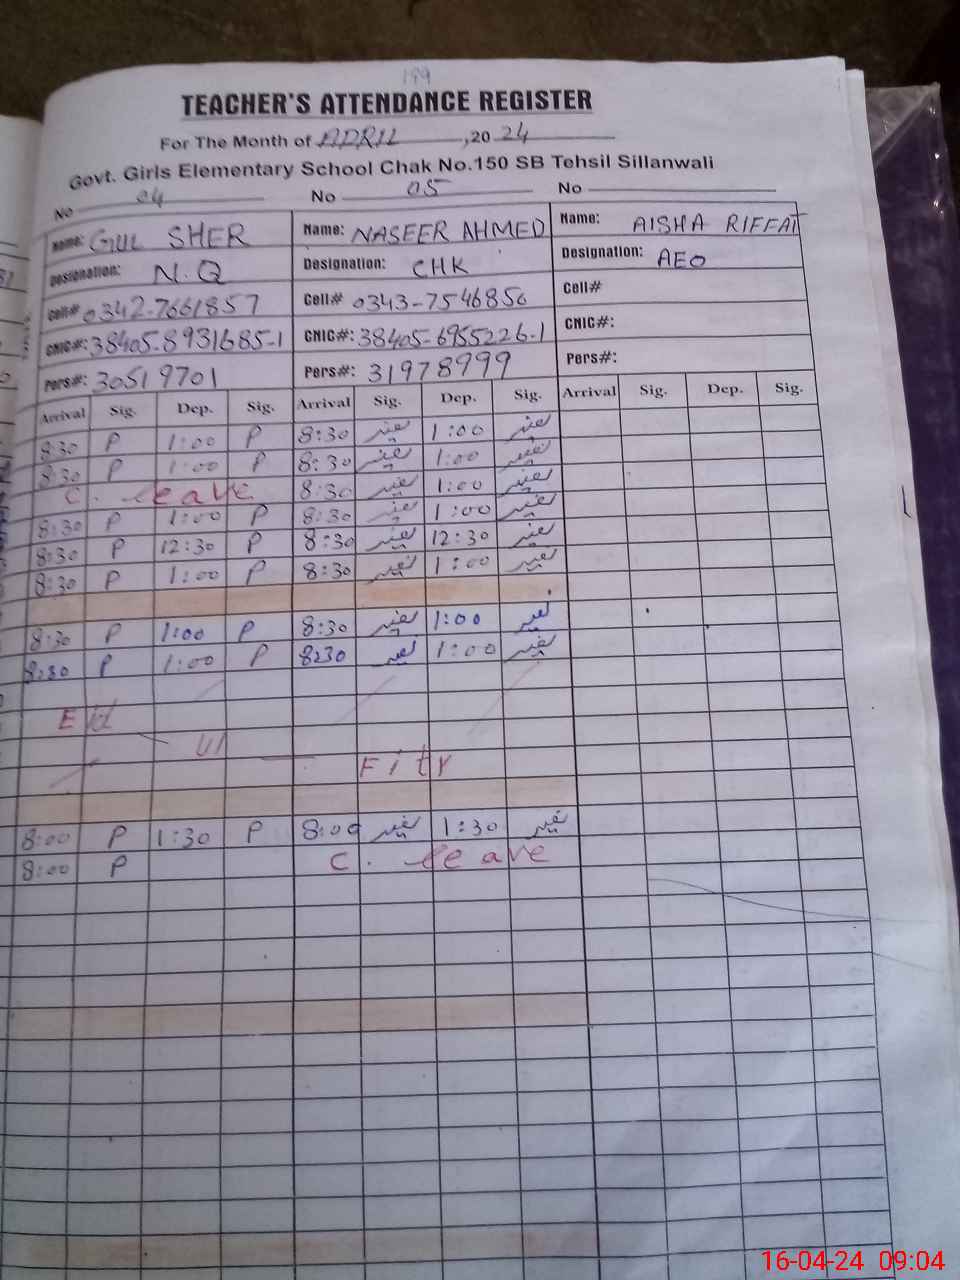 199
TEACHER'S ATTENDANCE REGISTER
For The Month of APRIL ,20 24
Govt. Girls Elementary School Chak No.150 SB Tehsil Sillanwali
No 04 No 05 No
Name: GUL SHER Name: NASEER AHMED Name: AISHA RIFFAT
Designation: N.Q Designation: CHK Designation: AEO
Cell# 0342-7661857 Cell# 0343-7546850 Cell#
CNIC#: 38405-8931685-1 CNIC#: 38405-6955226-1 CNIC#:
Pers#: 30519701 Pers#: 31978999 Pers#:
Arrival Sig. Dep. Sig. Arrival Sig. Dep. Sig. Arrival Sig. Dep. Sig.
8:30 P 1:00 P 8:30 1:00
8:30 P 1:00 P 8:30 1:00
C. leave 8:30 1:00
8:30 P 1:00 P 8:30 1:00
8:30 P 12:30 P 8:30 12:30
8:30 P 1:00 P 8:30 1:00
8:30 P 1:00 P 8:30 1:00
8:30 P 1:00 P 8:30 1:00
Eid
Ul
Fitr
8:00 P 1:30 P 8:00 1:30
8:00 P C. leave
16-04-24 09:04